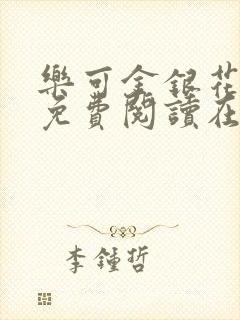 樂可金銀花
免費閱讀在
李鍾哲